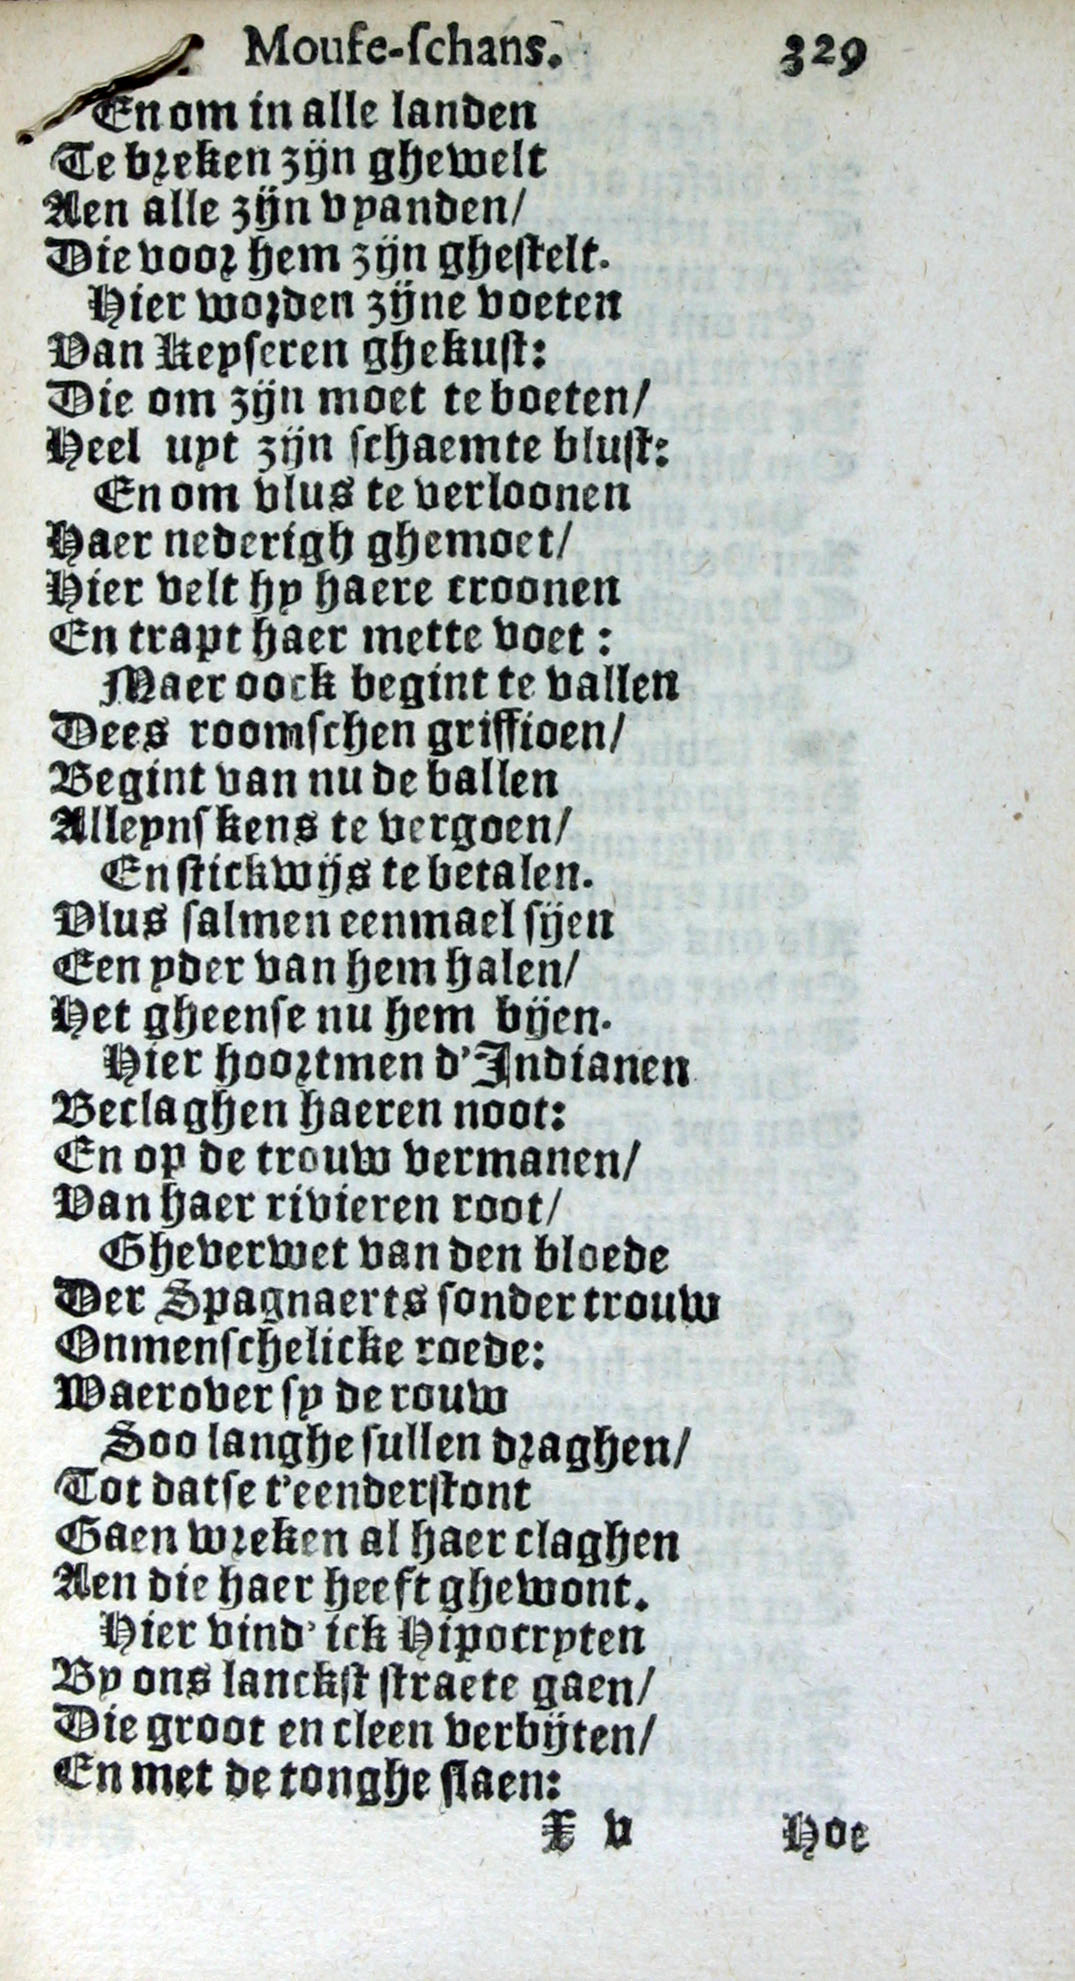 Moufe-ſchans. 329
En om in alle landen
Te breken zijn ghewelt
Aen alle zijn vyanden/
Die voor hem zijn gheſtelt.
Hier worden zijne voeten
Van Keyſeren ghekuſt:
Die om zijn moet te boeten/
Heel uyt zijn ſchaemte bluſt:
En om vlus te verloonen
Haer nederigh ghemoet/
Hier velt hy haere croonen
En trapt haer mette voet:
Maer oock begint te vallen
Dees roomſchen griffioen/
Begint van nu de ballen
Alleynſkens te vergoen/
En ſtickwijs te betalen.
Vlus ſalmen eenmael ſijen
Een yder van hem halen/
Het gheenſe nu hem bijen.
Hier hoortmen d'Indianen
Beclaghen haeren noot:
En op de trouw vermanen/
Van haer rivieren root/
Gheverwet van den bloede
Der Spagnaerts ſonder trouw
Onmenſchelicke roede:
Waerover ſy de rouw
Soo langhe ſullen draghen/
Tot datſe t'eenderſtont
Gaen wreken al haer claghen
Aen die haer heeft ghewont.
Hier vind' ick Hipocryten
By ons lanckſt ſtraete gaen/
Die groot en cleen verbijten/
En met de tonghe ſlaen:
X v Hoe